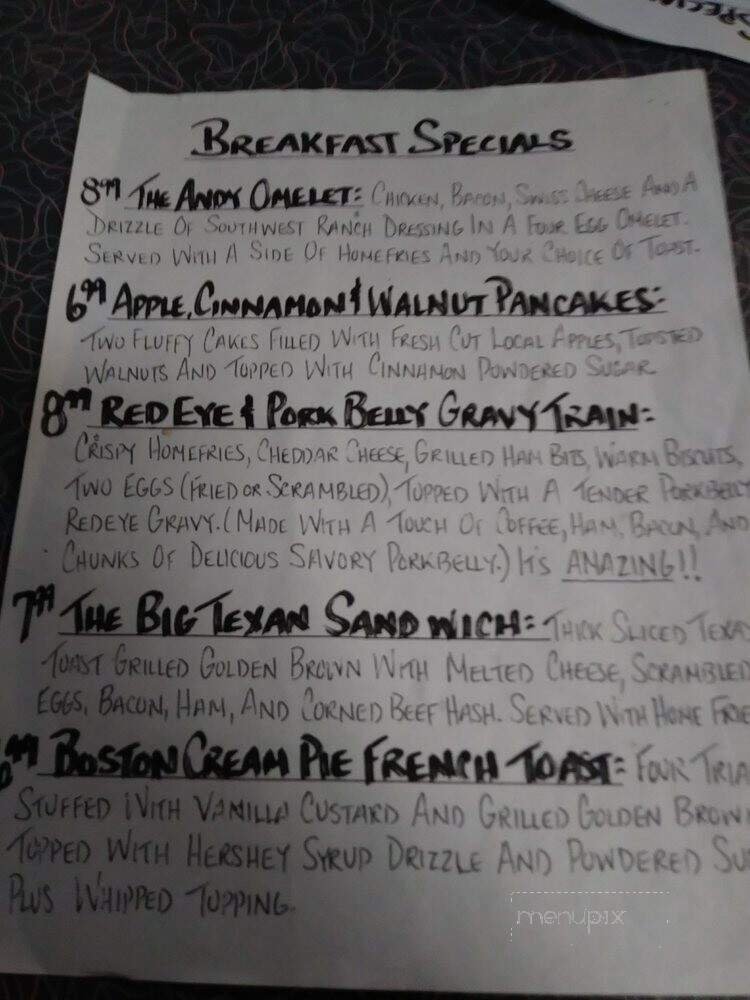 BREAKFAST SPECIALS
8.99 THE ANDY OMELET: CHICKEN, BACON, SWISS CHEESE AND A
DRIZZLE OF SOUTHWEST RANCH DRESSING IN A FOUR EGG OMELET.
SERVED WITH A SIDE OF HOMEFRIES AND YOUR CHOICE OF TOAST.
6.99 APPLE, CINNAMON & WALNUT PANCAKES:
TWO FLUFFY CAKES FILLED WITH FRESH CUT LOCAL APPLES, TOASTED
WALNUTS AND TOPPED WITH CINNAMON POWDERED SUGAR
8.99 RED EYE & PORK BELLY GRAVY TRAIN:
CRISPY HOMEFRIES, CHEDDAR CHEESE, GRILLED HAM BITS, WARM BISCUITS,
TWO EGGS (FRIED OR SCRAMBLED), TOPPED WITH A TENDER PORKBELLY
REDEYE GRAVY. (MADE WITH A TOUCH OF COFFEE, HAM, BACON, AND
CHUNKS OF DELICIOUS SAVORY PORKBELLY.) IT'S AMAZING!!
7.99 THE BIG TEXAN SANDWICH: THICK SLICED TEXA
TOAST GRILLED GOLDEN BROWN WITH MELTED CHEESE, SCRAMBLED
EGGS, BACON, HAM, AND CORNED BEEF HASH. SERVED WITH HOME FRIE
BOSTON CREAM PIE FRENCH TOAST: FOUR TRIA
STUFFED WITH VANILLA CUSTARD AND GRILLED GOLDEN BROW
TOPPED WITH HERSHEY SYRUP DRIZZLE AND POWDERED SU
PLUS WHIPPED TOPPING.
menupix